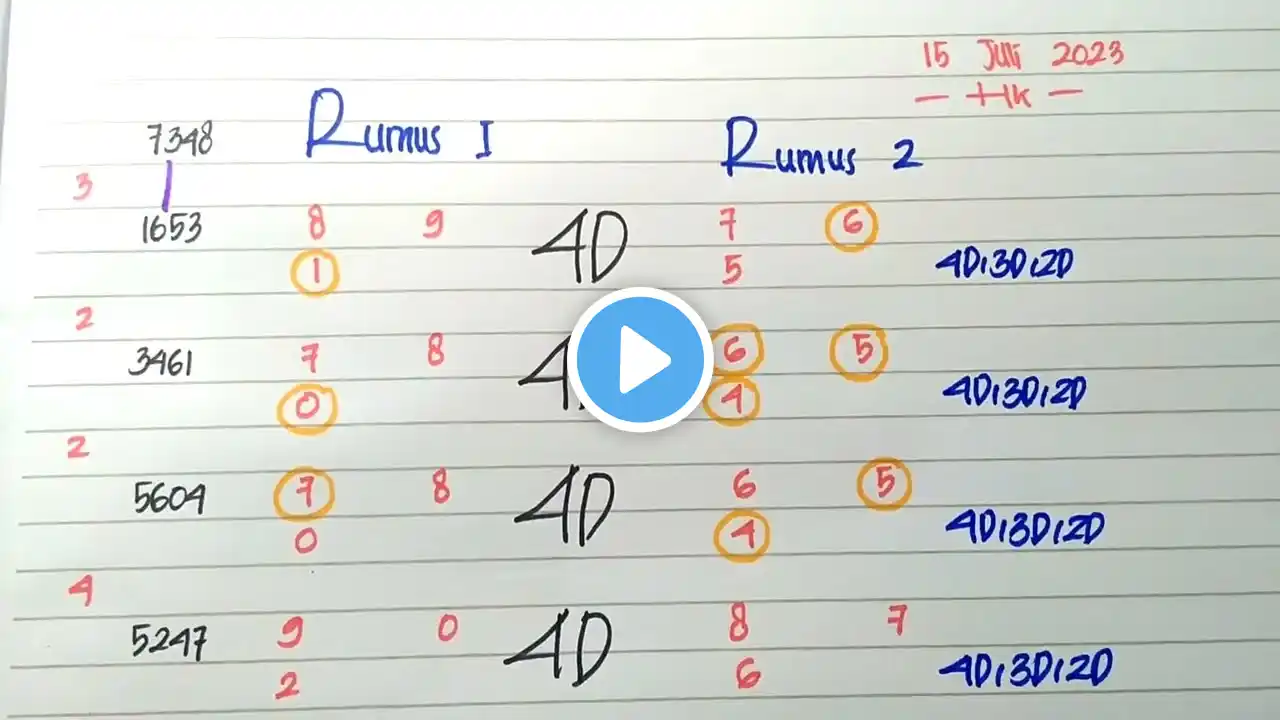 15 Juli 2023
— HK —
7348 Rumus I Rumus 2
3
1653 8 9 4D 7 6
1 5 4D,3D,2D
2
3461 7 8 6 5
0 4 4D,3D,2D
2
5604 7 8 4D 6 5
0 4 4D,3D,2D
4
5247 9 0 4D 8 7
2 6 4D,3D,2D